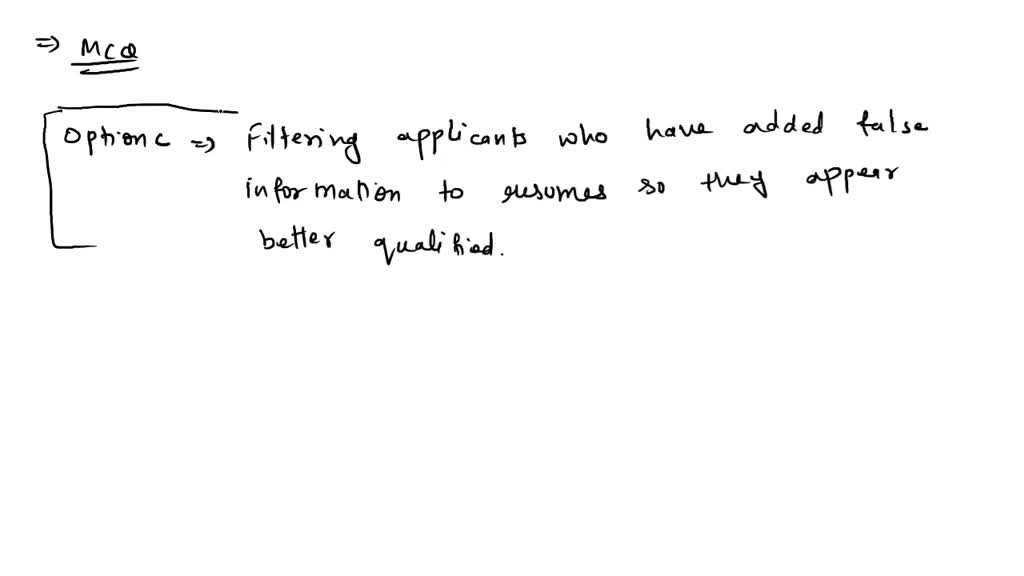 ⇒ MCQ
Option C ⇒ Filtering applicants who have added false
information to resumes so they appear
better qualified.